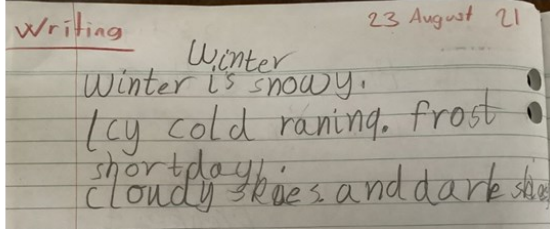 Writing 23 August 21
Winter
Winter is snowy.
Icy cold raning. frost
short day.
cloudy skies and dark skies